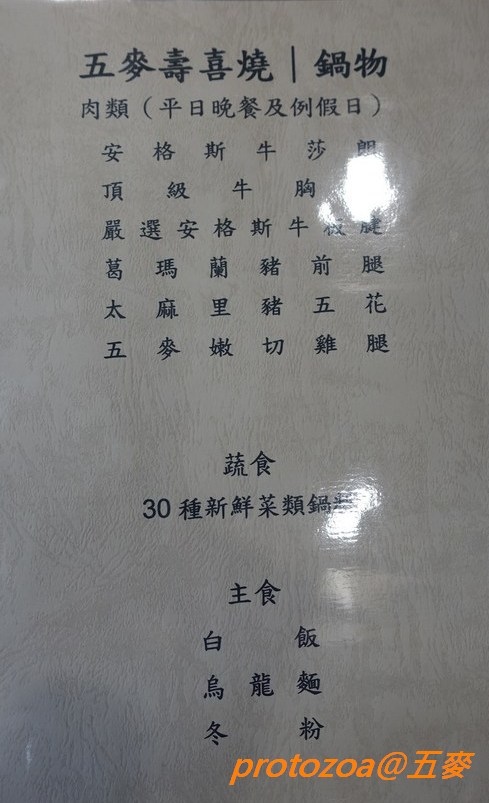 五麥壽喜燒｜鍋物
肉類（平日晚餐及例假日）
安格斯牛莎朗
頂級牛胸
嚴選安格斯牛板腱
葛瑪蘭豬前腿
太麻里豬五花
五麥嫩切雞腿
蔬食
30種新鮮菜類鍋料
主食
白飯
烏龍麵
冬粉
protozoa@五麥